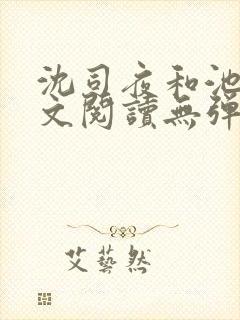 沈司夜和池
文閱讀無彈
艾藝然